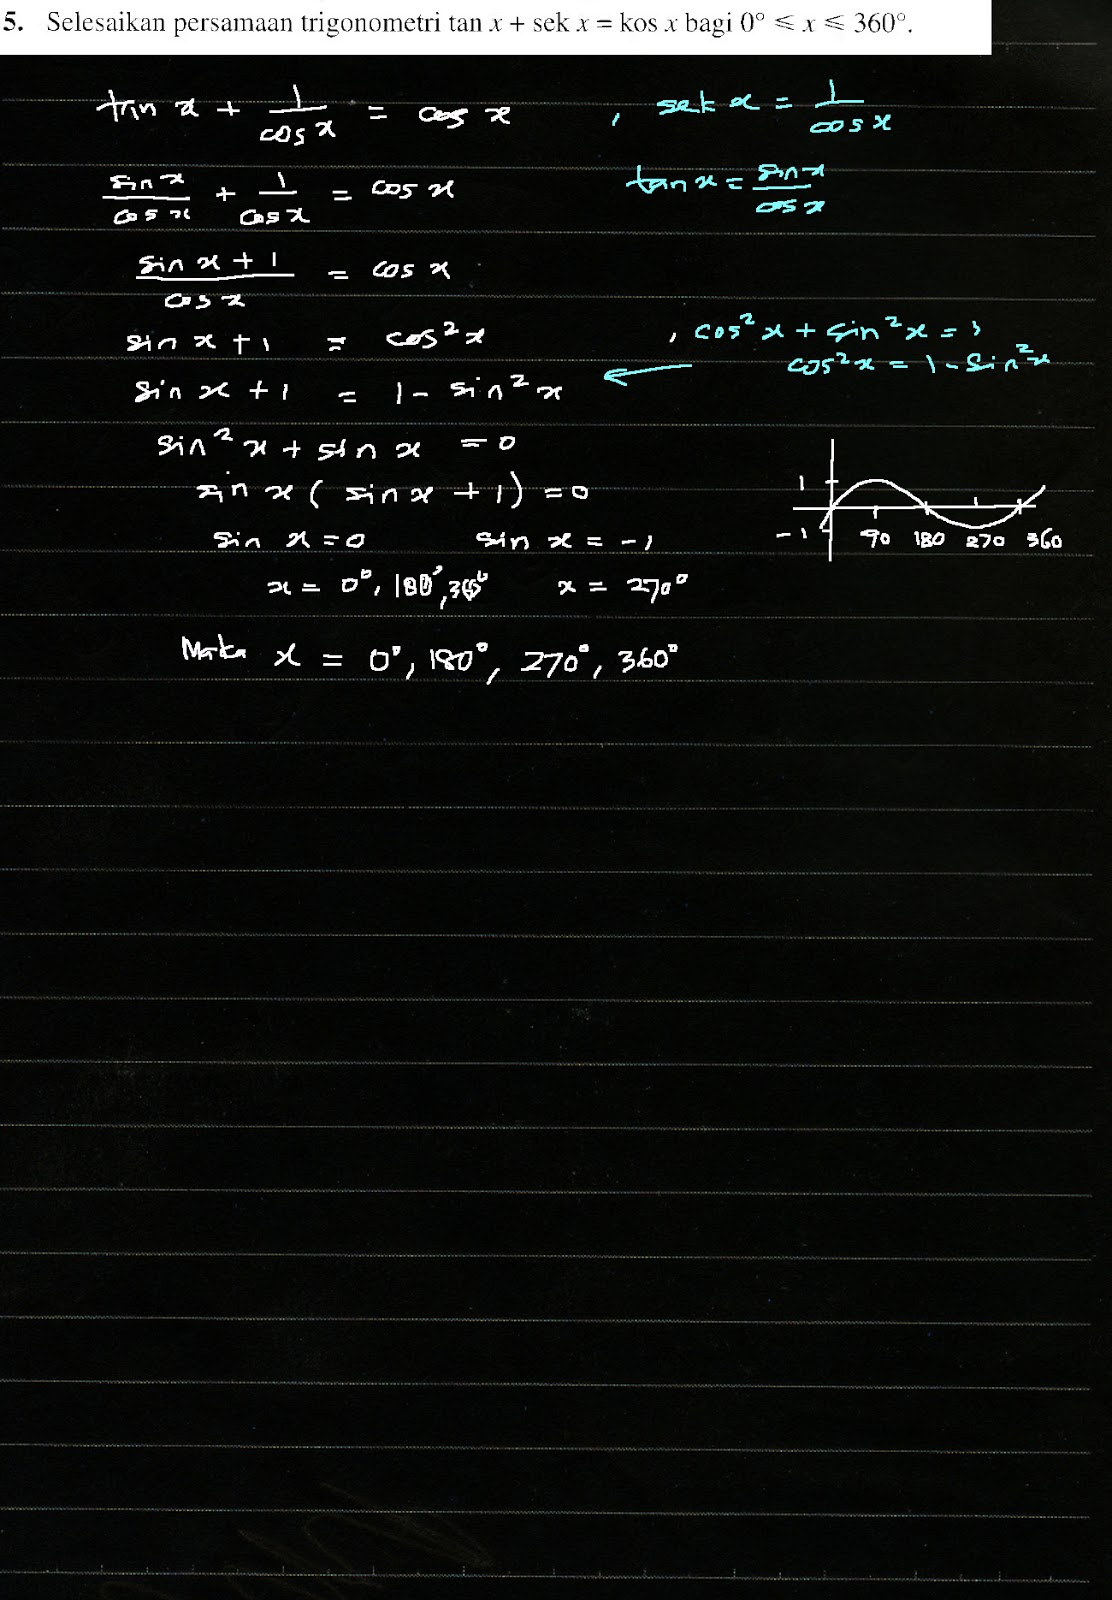 5. Selesaikan persamaan trigonometri tan x + sek x = kos x bagi 0° ⩽ x ⩽ 360°.
tan x + 1/cos x = cos x , sek x = 1/cos x
sin x/cos x + 1/cos x = cos x tan x = sin x/cos x
sin x + 1/cos x = cos x
sin x + 1 = cos² x , cos² x + sin² x = 1
cos² x = 1 - sin² x
sin x + 1 = 1 - sin² x
sin² x + sin x = 0
sin x ( sin x + 1 ) = 0
1
sin x = 0 sin x = -1
-1 90 180 270 360
x = 0°, 180°, 360° x = 270°
Maka x = 0°, 180°, 270°, 360°